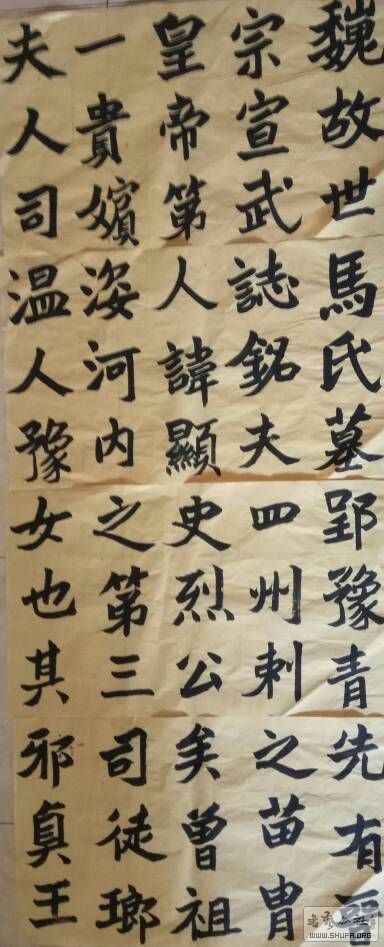 魏故世
宗宣武
皇帝第
一貴嬪
夫人司
馬氏墓
誌銘夫
人諱顯
姿河内
温人豫
郢豫青
四州刺
史烈公
之第三
女也其
先有晉
之苗胄
矣曾祖
司徒瑯
邪貞王
WWW.SHUFA.ORG